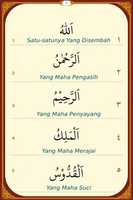 اَللّٰهُ
Satu-satunya Yang Disembah
١
اَلرَّحْمٰنُ
Yang Maha Pengasih
٢
اَلرَّحِيْمُ
Yang Maha Penyayang
٣
اَلْمَلِكُ
Yang Maha Merajai
٤
اَلْقُدُّوْسُ
Yang Maha Suci
٥